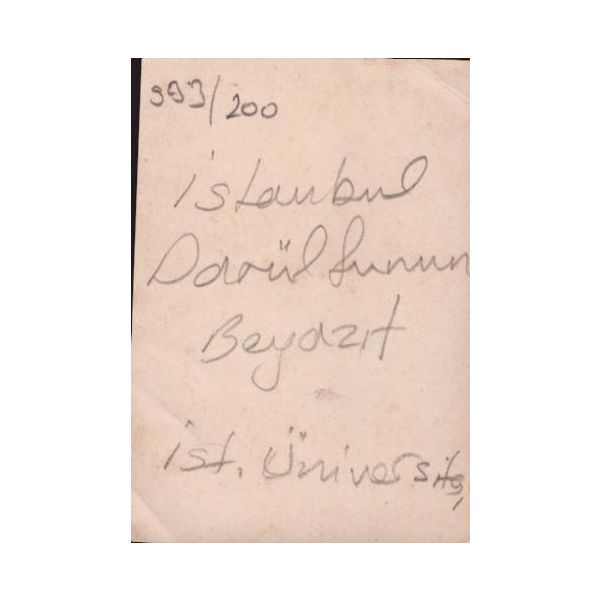 993/200
istanbul
Darülfunun
Beyazıt
ist. Üniversite,